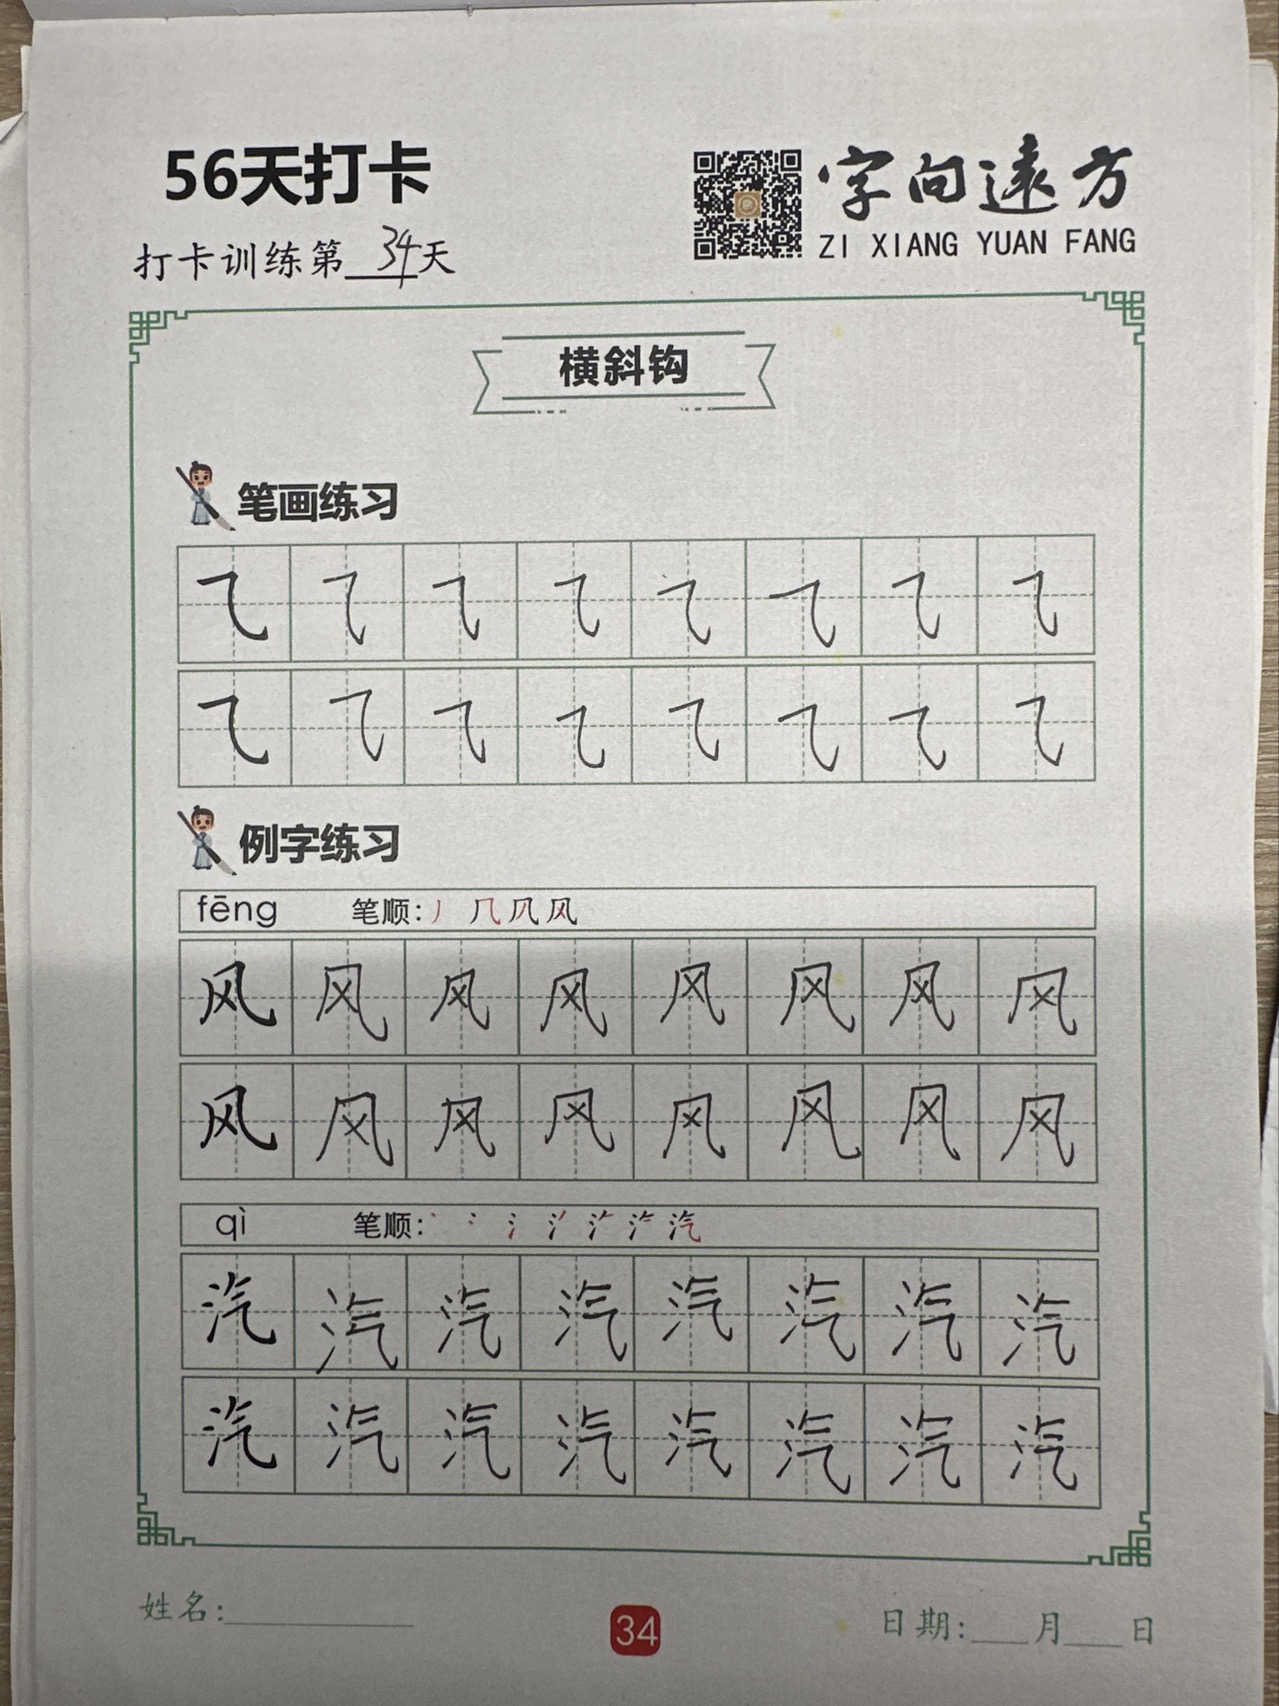 56天打卡
打卡训练第34天
字向遠方
ZI XIANG YUAN FANG
横斜钩
笔画练习
㇈ ㇈ ㇈ ㇈ ㇈ ㇈ ㇈ ㇈
㇈ ㇈ ㇈ ㇈ ㇈ ㇈ ㇈ ㇈
例字练习
fēng 笔顺: 丿 几 凤 风
风 风 风 风 风 风 风 风
风 风 风 风 风 风 风 风
qì 笔顺: 汽
汽 汽 汽 汽 汽 汽 汽 汽
汽 汽 汽 汽 汽 汽 汽 汽
姓名:
34
日期: 月 日